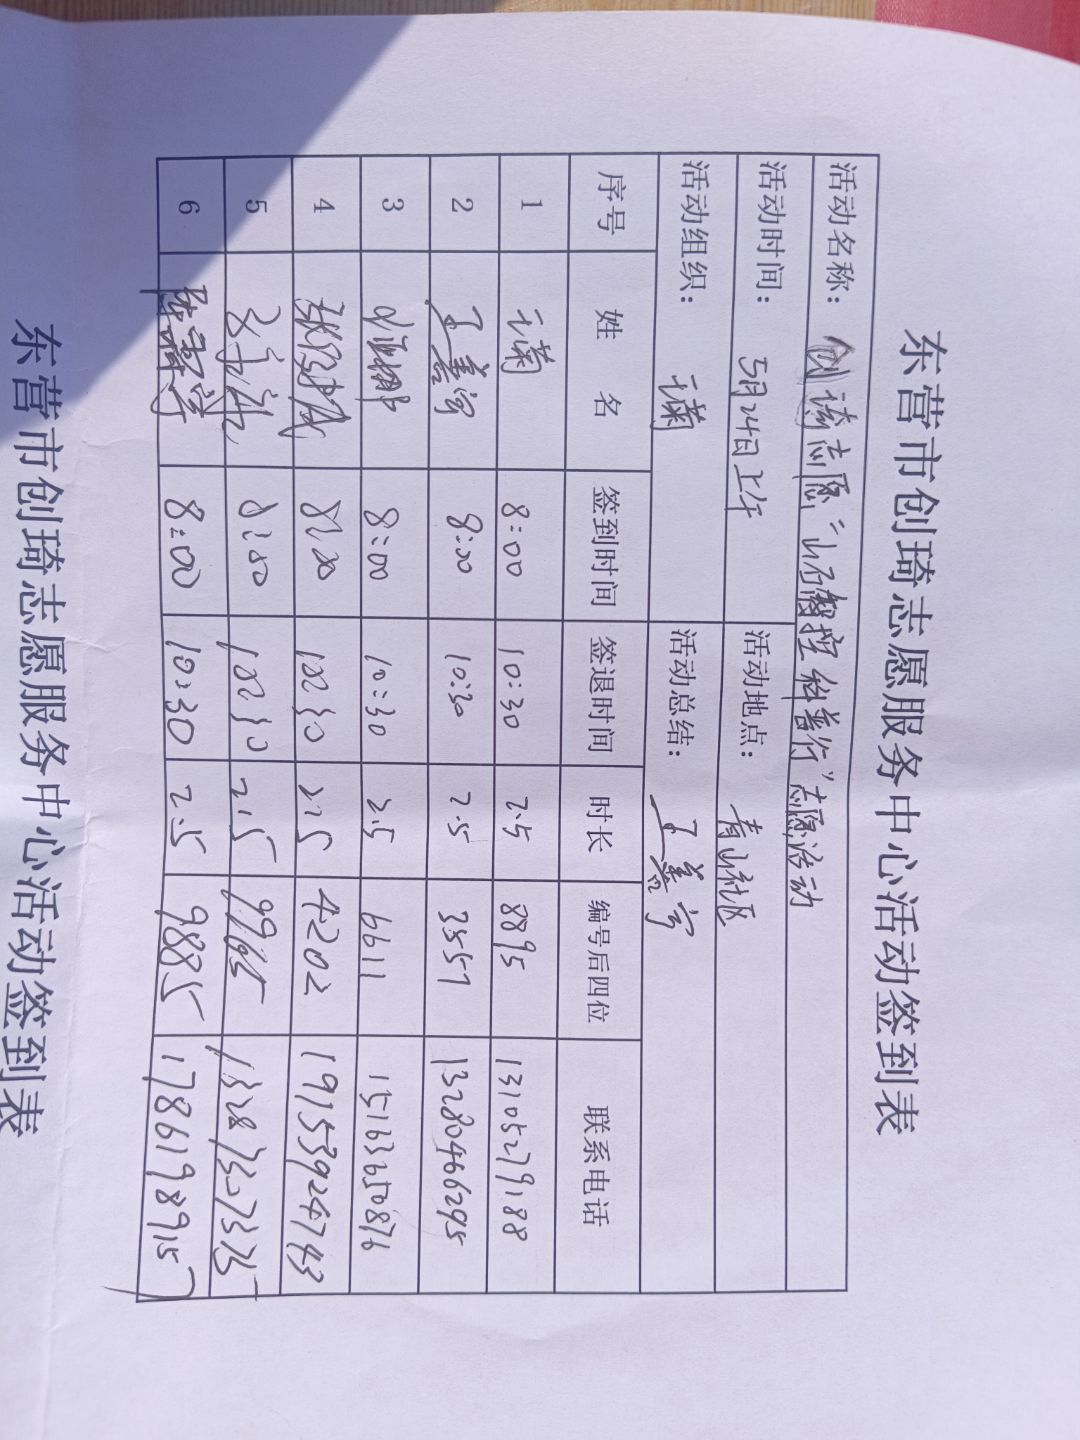 东营市创琦志愿服务中心活动签到表
活动名称: 创琦志愿“山石智控科普行”志愿活动
活动时间: 5月24日上午 活动地点: 青山社区
活动组织: 活动总结: 王善宇
序号 姓 名 签到时间 签退时间 时长 编号后四位 联系电话
1 8:00 10:30 2.5 8895 13105279188
2 王善宇 8:00 10:30 2.5 3557 13280466295
3 8:00 10:30 2.5 6611 15163650876
4 8:00 10:30 2.5 4202 19153924743
5 8:00 10:30 2.5 9965
6 8:00 10:30 2.5 9885 17861989157
东营市创琦志愿服务中心活动签到表